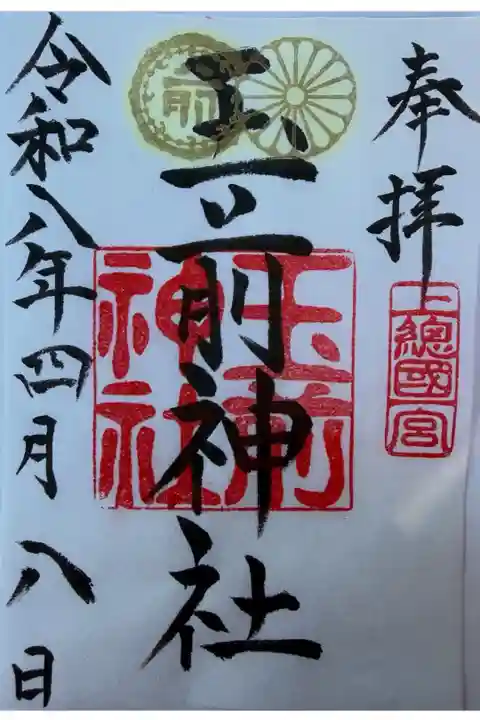 奉拝
上總國一宮
玉前神社
玉前
神社
令和八年四月八日